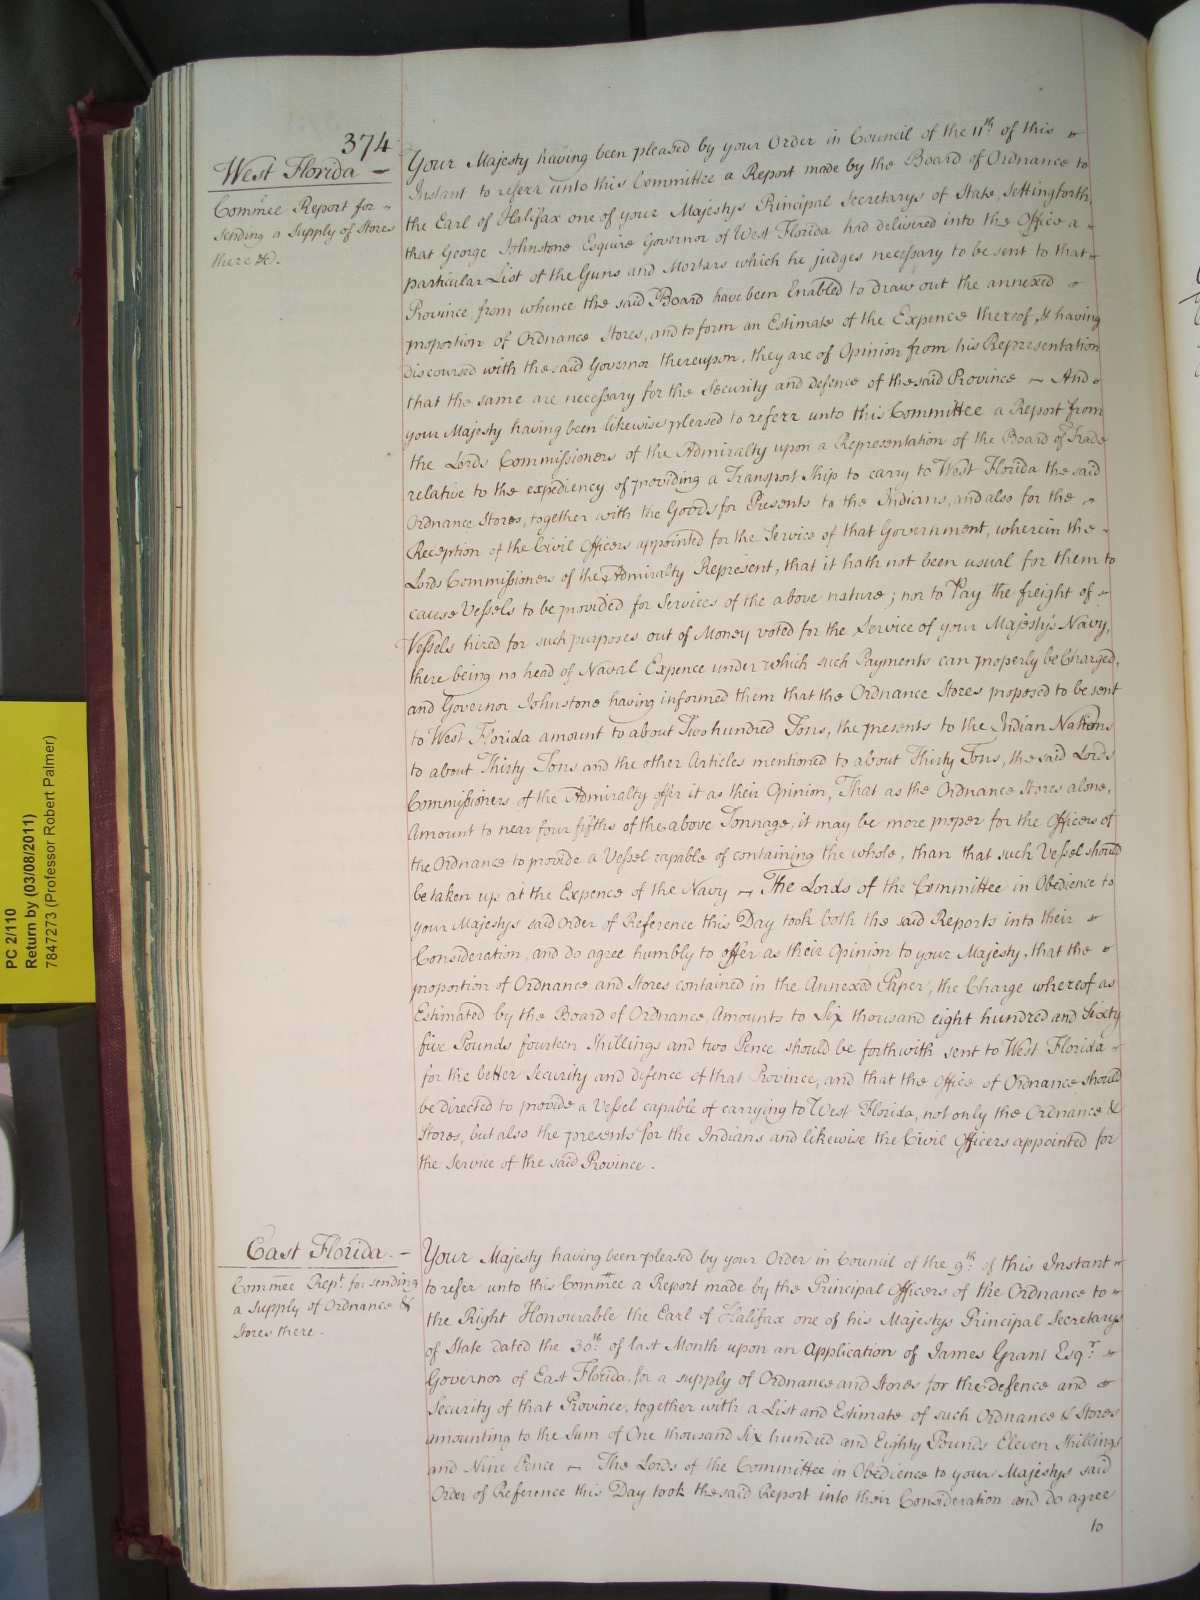 374
West Florida —
Commee Report for
sending a Supply of Stores
there &c.
Your Majesty having been pleased by your Order in Council of the 11th of this
Instant to referr unto this Committee a Report made by the Board of Ordnance to
the Earl of Halifax one of your Majestys Principal Secretarys of State, Settingforth
that George Johnstone Esquire Governor of West Florida had delivered into the Office a
particular List of the Guns and Mortars which he judges necessary to be sent to that
Province from whence the said Board have been Enabled to draw out the annexed
proportion of Ordnance Stores, and to form an Estimate of the Expence thereof, & having
discoursed with the said Governor thereupon, they are of Opinion from his Representation
that the same are necessary for the Security and defence of the said Province — And
your Majesty having been likewise pleased to referr unto this Committee a Report from
the Lords Commissioners of the Admiralty upon a Representation of the Board of Trade
relative to the expediency of providing a Transport Ship to carry to West Florida the said
Ordnance Stores, together with the Goods for Presents to the Indians, and also for the
Reception of the Civil Officers appointed for the Service of that Government, wherein the
Lords Commissioners of the Admiralty Represent, that it hath not been usual for them to
cause Vessels to be provided for Services of the above nature; nor to Pay the freight of
Vessels hired for such purposes out of Money voted for the Service of your Majesty's Navy,
there being no head of Naval Expence under which such Payments can properly be Charged,
and Governor Johnstone having informed them that the Ordnance Stores proposed to be sent
to West Florida amount to about Two hundred Tons, the presents to the Indian Nations
to about Thirty Tons and the other Articles mentioned to about Thirty Tons, the said Lords
Commissioners of the Admiralty offer it as their Opinion, That as the Ordnance Stores alone,
Amount to near four fifths of the above Tonnage, it may be more proper for the Officers of
the Ordnance to provide a Vessel capable of containing the whole, than that such Vessel should
be taken up at the Expence of the Navy — The Lords of the Committee in Obedience to
your Majestys said Order of Reference this Day took both the said Reports into their
Consideration, and do agree humbly to offer as their Opinion to your Majesty, that the
proportion of Ordnance and Stores contained in the Annexed Paper, the Charge whereof as
Estimated by the Board of Ordnance, Amounts to Six thousand eight hundred and Sixty
five Pounds fourteen Shillings and two Pence should be forthwith sent to West Florida
for the better Security and defence of that Province, and that the Office of Ordnance should
be directed to provide a Vessel capable of carrying to West Florida, not only the Ordnance &
Stores, but also the presents for the Indians and likewise the Civil Officers appointed for
the Service of the said Province.
East Florida. —
Commee Rept. for sending
a Supply of Ordnance &
Stores there.
Your Majesty having been pleased by your Order in Council of the 9th of this Instant
to refer unto this Commee a Report made by the Principal Officers of the Ordnance to
the Right Honourable the Earl of Halifax one of his Majestys Principal Secretarys
of State dated the 30th of last Month upon an Application of James Grant Esqr
Governor of East Florida, for a supply of Ordnance and Stores for the defence and
Security of that Province, together with a List and Estimate of such Ordnance & Stores
amounting to the Sum of One thousand Six hundred and Eighty Pounds Eleven Shillings
and Nine Pence — The Lords of the Committee in Obedience to your Majestys said
Order of Reference this Day took the said Report into their Consideration and do agree
to
PC 2/110
Return by (03/08/2011)
7847273 (Professor Robert Palmer)